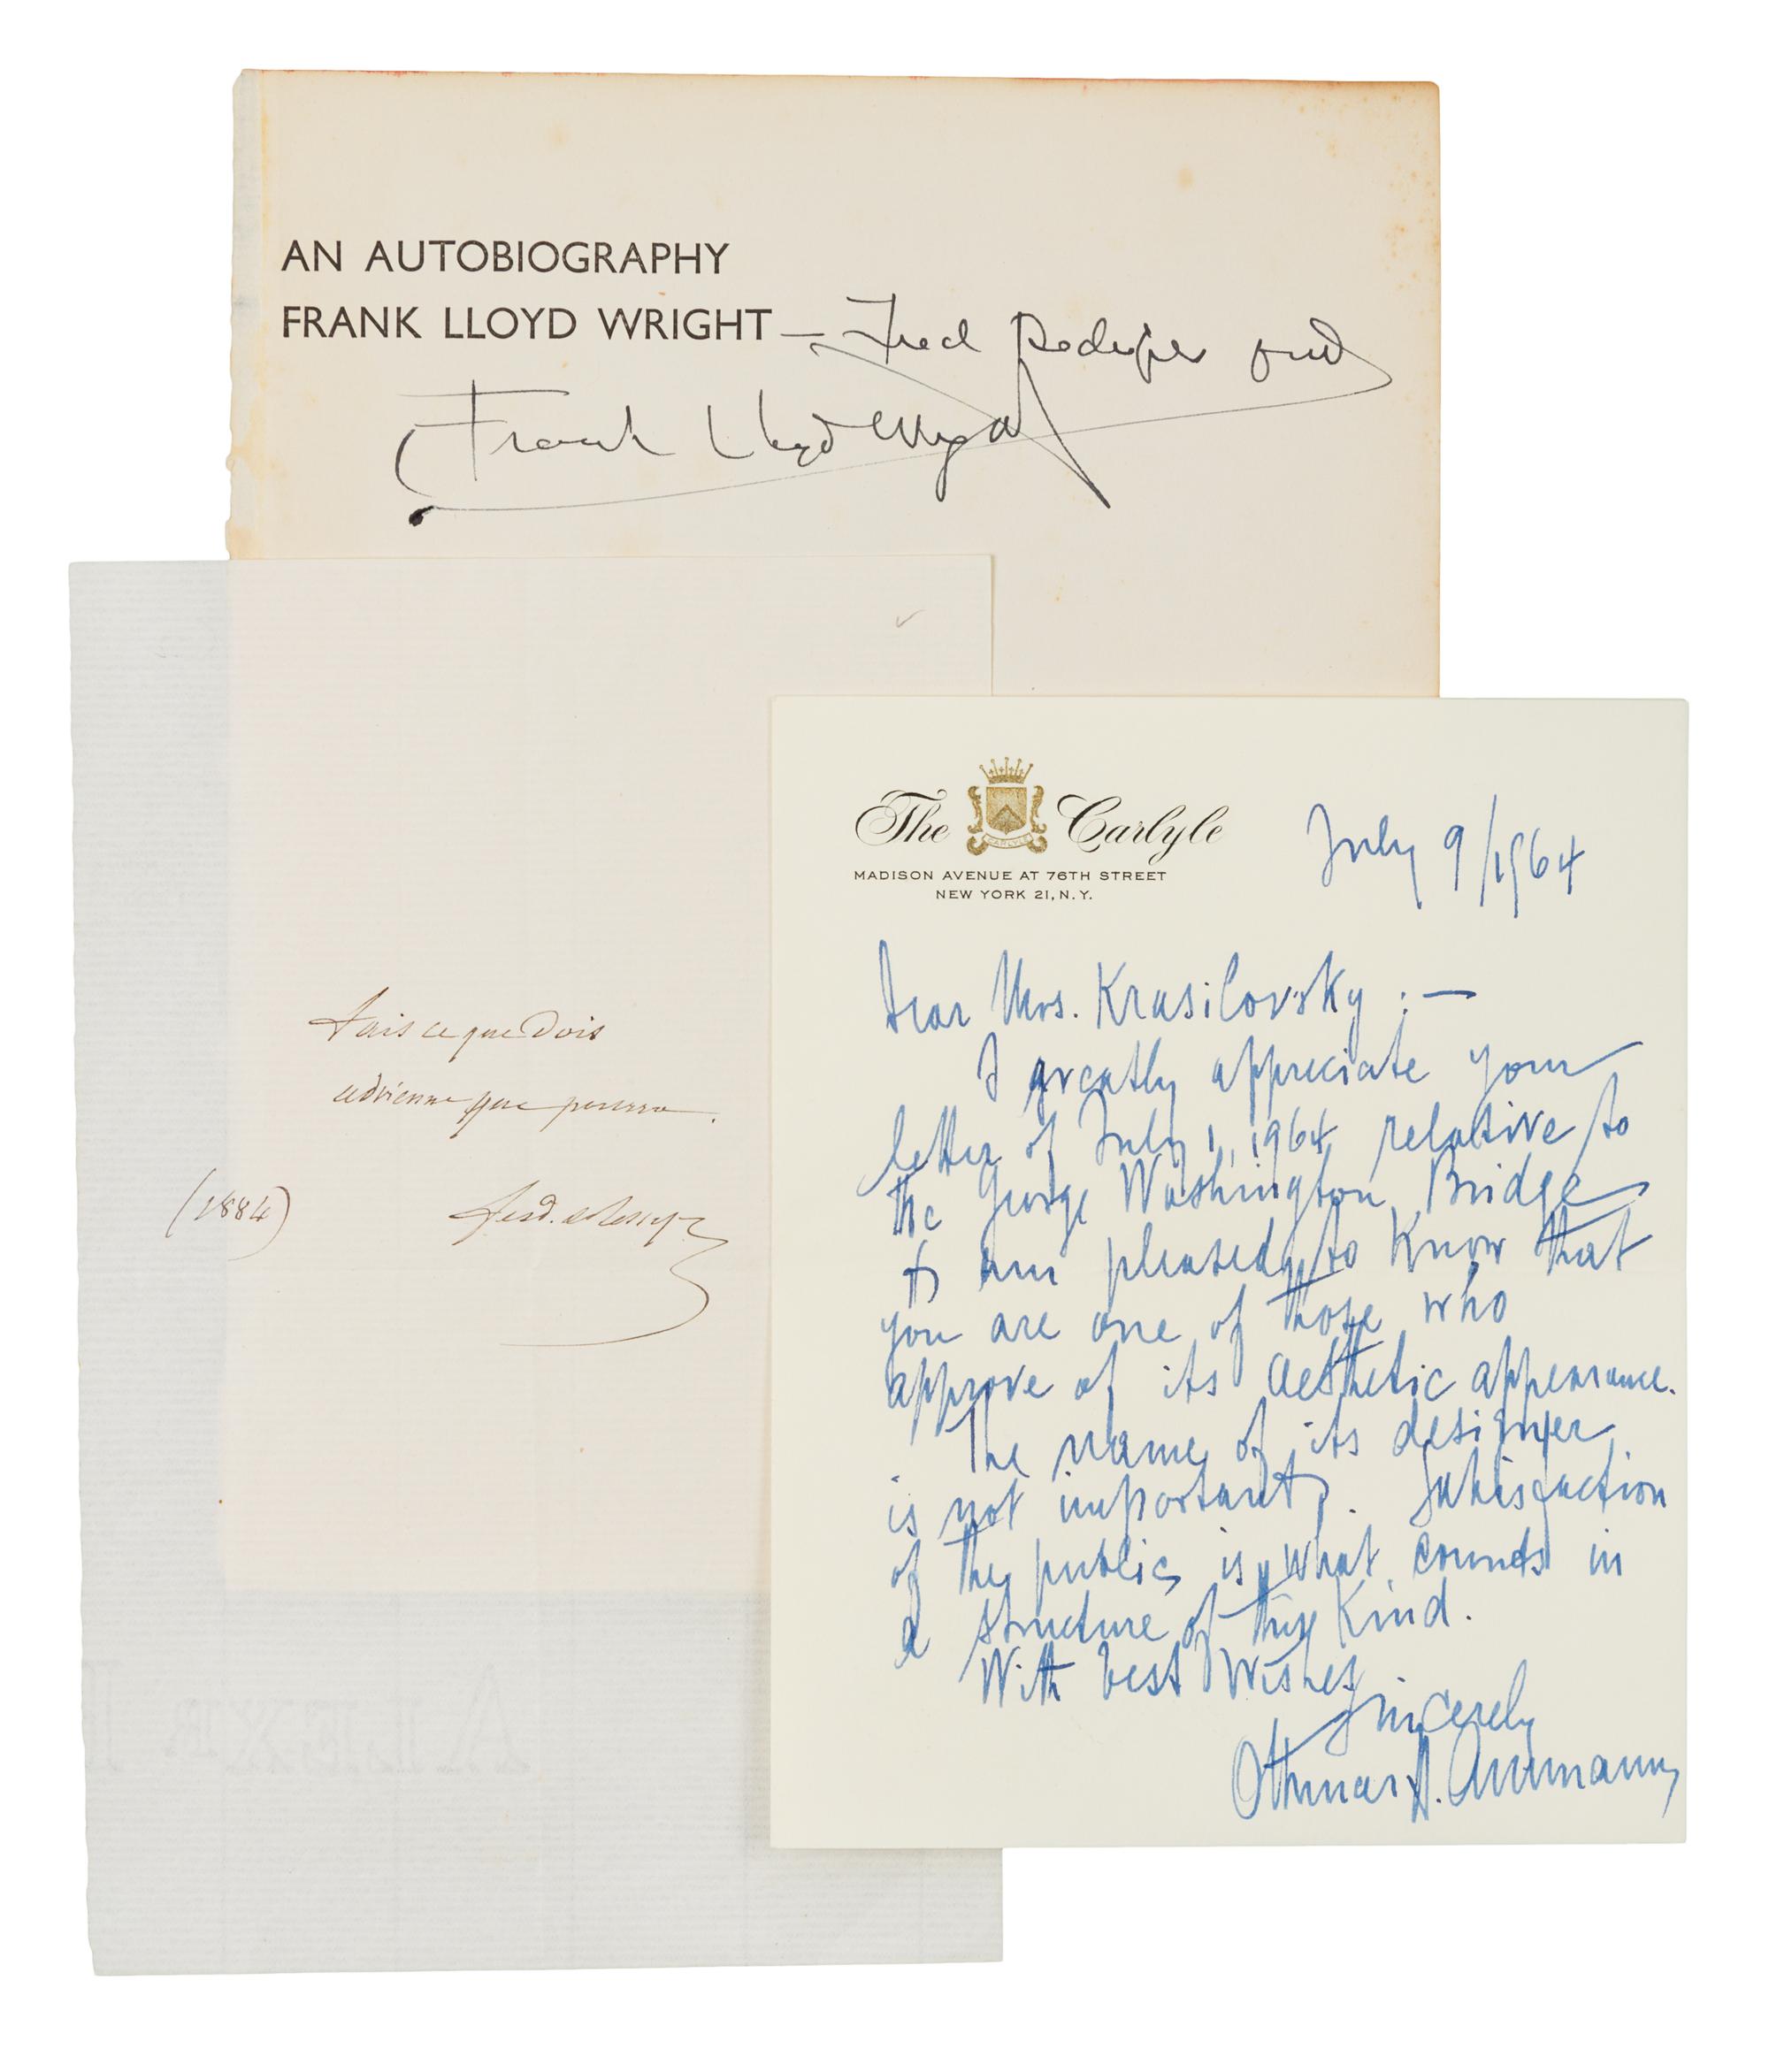 AN AUTOBIOGRAPHY
FRANK LLOYD WRIGHT
Fred
Frank Lloyd Wright
fais ce que dois
advienne que pourra.
(1884)
Ferd. de Lesseps
The Carlyle
CARLYLE
MADISON AVENUE AT 76TH STREET
NEW YORK 21, N.Y.
July 9/1964
Dear Mrs. Krasilovsky :—
I greatly appreciate your
letter of July 1, 1964 relative to
the George Washington Bridge
I am pleased to know that
you are one of those who
approve of its aesthetic appearance.
The name of its designer
is not important. Satisfaction
of the public is what counts in
a structure of this kind.
With best wishes
Sincerely
Othmar H. Ammann